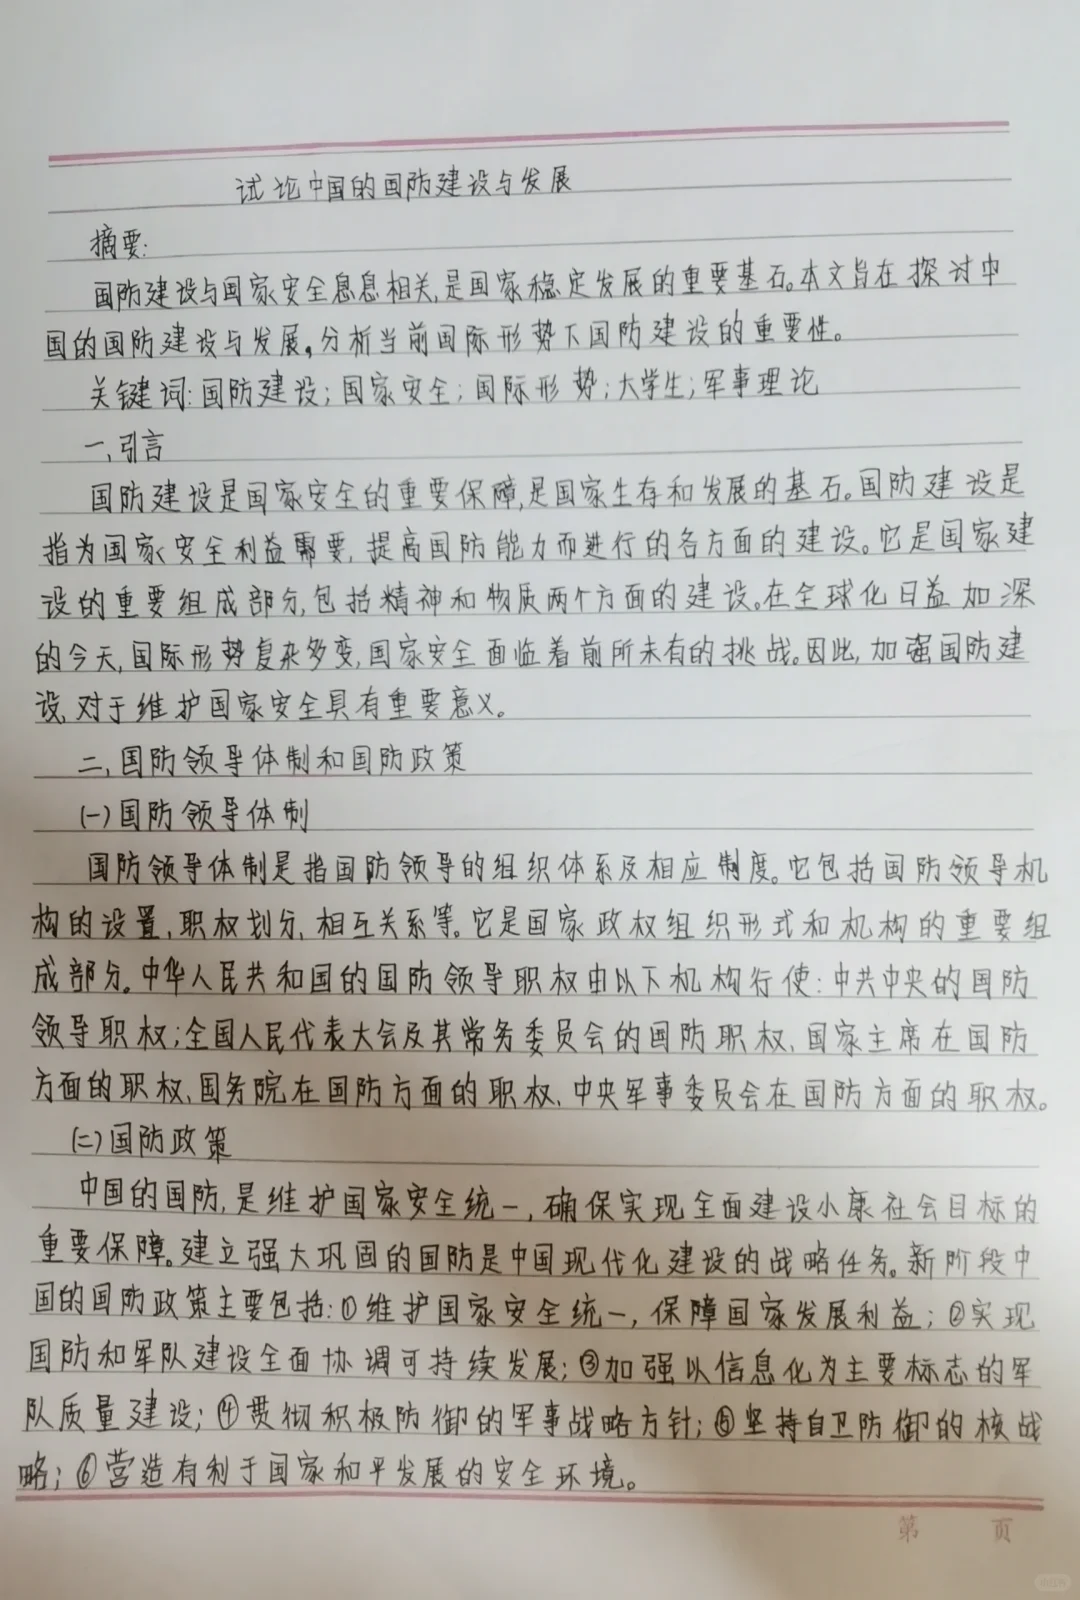 试论中国的国防建设与发展
摘要:
国防建设与国家安全息息相关,是国家稳定发展的重要基石。本文旨在探讨中
国的国防建设与发展。分析当前国际形势下国防建设的重要性。
关键词:国防建设;国家安全;国际形势;大学生;军事理论
一,引言
国防建设是国家安全的重要保障,是国家生存和发展的基石。国防建设是
指为国家安全利益需要,提高国防能力而进行的各方面的建设。它是国家建
设的重要组成部分,包括精神和物质两个方面的建设。在全球化日益加深
的今天,国际形势复杂多变,国家安全面临着前所未有的挑战。因此,加强国防建
设,对于维护国家安全具有重要意义。
二,国防领导体制和国防政策
(一)国防领导体制
国防领导体制是指国防领导的组织体系及相应制度。它包括国防领导机
构的设置,职权划分,相互关系等。它是国家政权组织形式和机构的重要组
成部分。中华人民共和国的国防领导职权由以下机构行使:中共中央的国防
领导职权;全国人民代表大会及其常务委员会的国防职权、国家主席在国防
方面的职权、国务院在国防方面的职权、中央军事委员会在国防方面的职权。
(二)国防政策
中国的国防,是维护国家安全统一,确保实现全面建设小康社会目标的
重要保障。建立强大巩固的国防是中国现代化建设的战略任务。新阶段中
国的国防政策主要包括:①维护国家安全统一,保障国家发展利益;②实现
国防和军队建设全面协调可持续发展;③加强以信息化为主要标志的军
队质量建设;④贯彻积极防御的军事战略方针;⑤坚持自卫防御的核战
略;⑥营造有利于国家和平发展的安全环境。
第 页